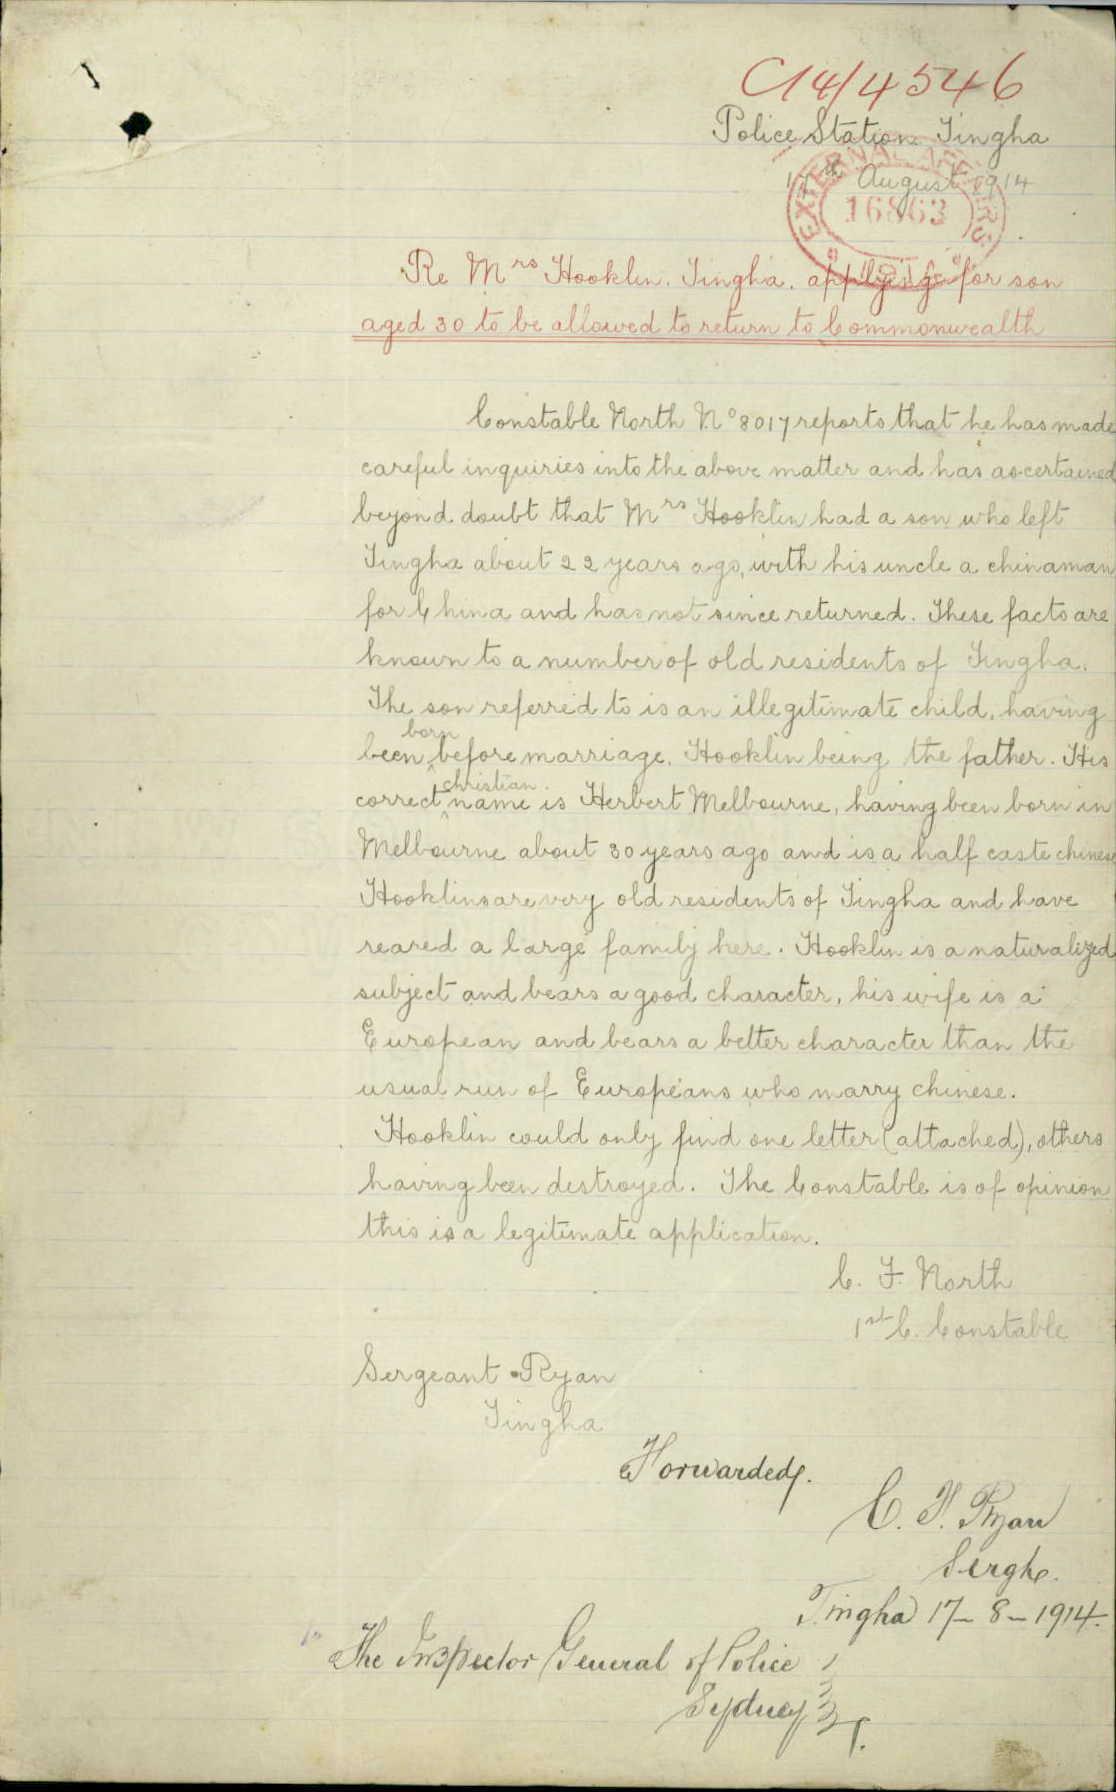 C14/4546
Police Station Tingha
17th August 1914
EXTERNAL AFFAIRS
16863
Re Mrs Hooklin. Tingha. applying for son
aged 30 to be allowed to return to Commonwealth
Constable North No 8017 reports that he has made
careful inquiries into the above matter and has ascertained
beyond doubt that Mrs Hooklin had a son who left
Tingha about 22 years ago, with his uncle a chinaman
for China and has not since returned. These facts are
known to a number of old residents of Tingha.
The son referred to is an illegitimate child, having
born
been before marriage, Hooklin being the father. His
christian
correct name is Herbert Melbourne, having been born in
Melbourne about 30 years ago and is a half caste chinese
Hooklins are very old residents of Tingha and have
reared a large family here. Hooklin is a naturalized
subject and bears a good character, his wife is a
European and bears a better character than the
usual run of Europeans who marry chinese.
Hooklin could only find one letter (attached), others
having been destroyed. The Constable is of opinion
this is a legitimate application.
C. F. North
1st C. Constable
Sergeant Ryan
Tingha
Forwarded.
Ryan
Sergt.
Tingha 17-8-1914.
The Inspector General of Police
Sydney